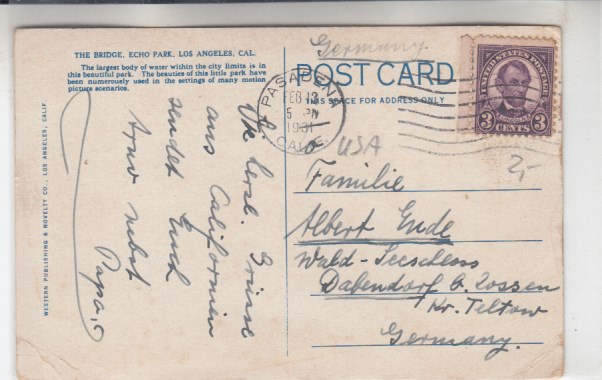 THE BRIDGE, ECHO PARK, LOS ANGELES, CAL.
The largest body of water within the city limits is in
this beautiful park. The beauties of this little park have
been numerously used in the settings of many motion
picture scenarios.
WESTERN PUBLISHING & NOVELTY CO., LOS ANGELES, CALIF.
Die herzl. Grüsse
aus Californien
sendet Euch
nebst
Papa.
Germany.
POST CARD
THIS SPACE FOR ADDRESS ONLY
PASADENA
FEB 12
5 PM
1931
CALIF.
UNITED STATES POSTAGE
LINCOLN
3 CENTS 3
USA
2,-
Familie
Albert Ende
Wald-Seeschloss
Dabendorf b. Zossen
Kr. Teltow
Germany.